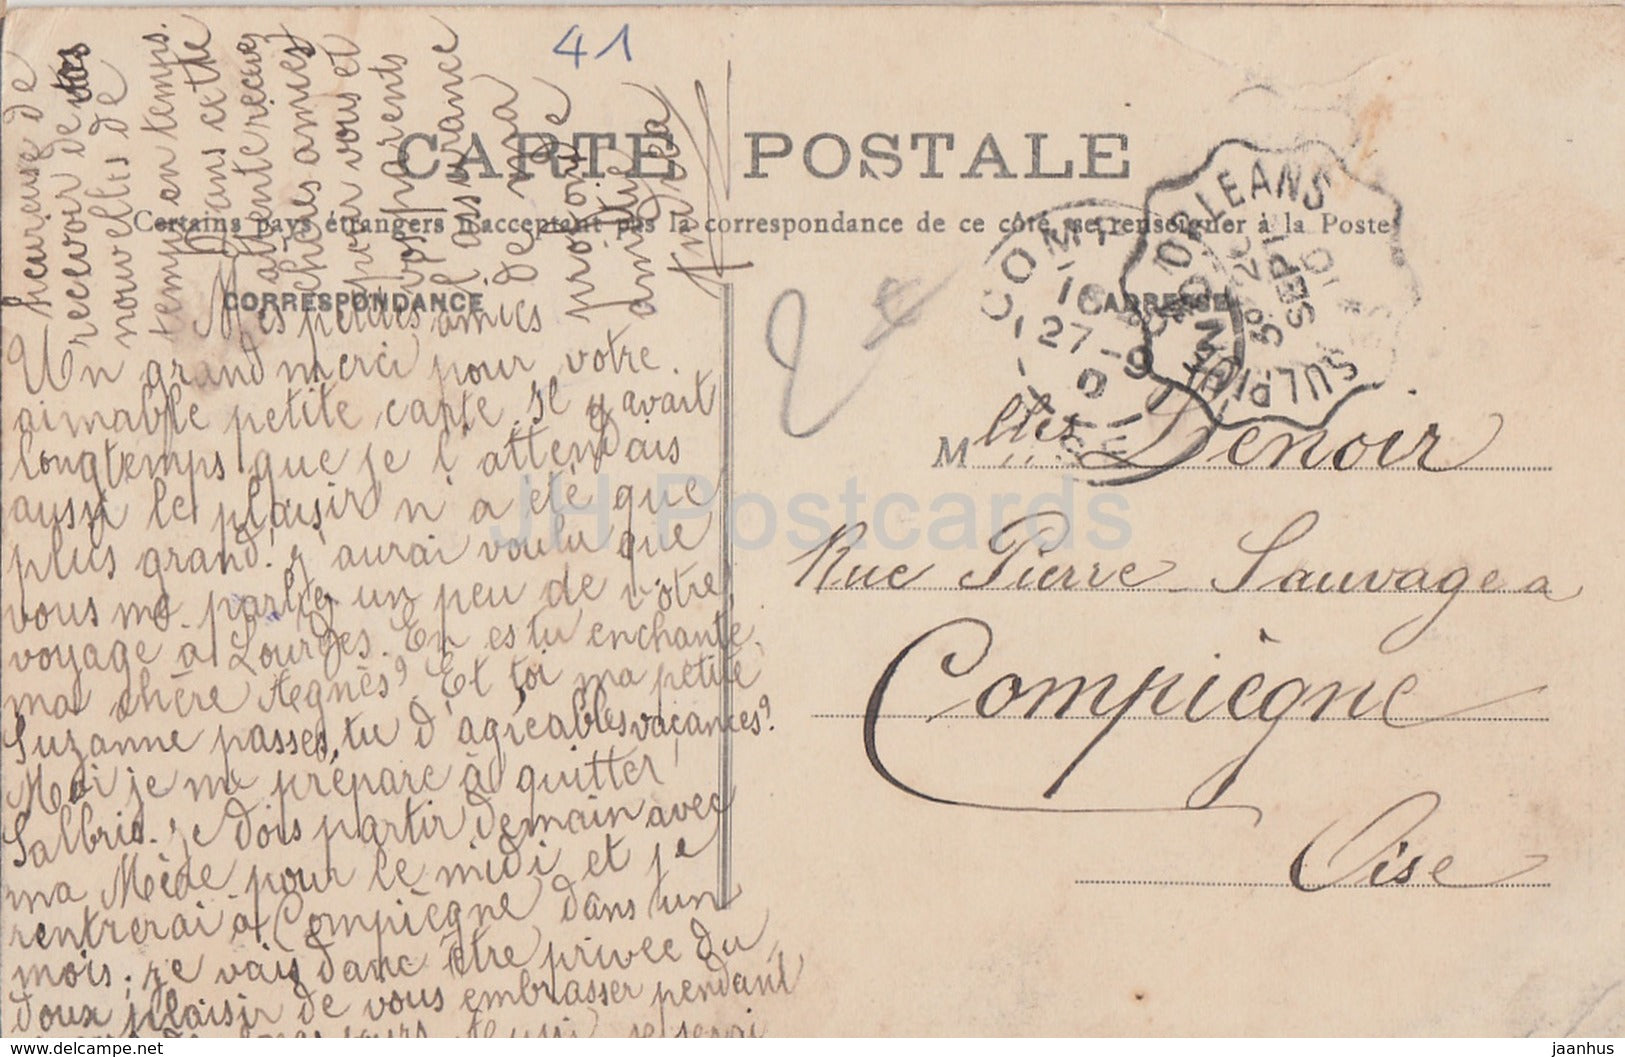 41
CARTE POSTALE
Certains pays étrangers n'acceptent pas la correspondance de ce côté, se renseigner à la Poste
CORRESPONDANCE
ADRESSE
Mes petites amies
Un grand merci pour votre
aimable petite carte. Il y avait
longtemps que je l'attendais
aussi le plaisir n'a été que
plus grand. J'aurai voulu que
vous me parliez un peu de votre
voyage à Lourdes. En es tu enchantée
ma chère Agnès? Et toi ma petite
Suzanne passes tu d'agréables vacances?
Moi je me prépare à quitter
Salbris. Je dois partir demain avec
ma Mère pour le midi et je
rentrerai à Compiègne dans un
mois; je vais donc être privée du
doux plaisir de vous embrasser pendant
Aussi je serai
heureuse de
recevoir de vos
nouvelles de
temps en temps.
Dans cette
attente recevez
chères amies
pour vous et
vos parents
l'assurance
de ma
profonde
amitié
Andréa
Mlles Denoir
Rue Pierre Sauvage a
Compiègne
Oise
ORLEANS
20
SEPT
10
SULPICE
COMPIEGNE
27-9
OISE
JH Postcards
delcampe.net
jaanhus